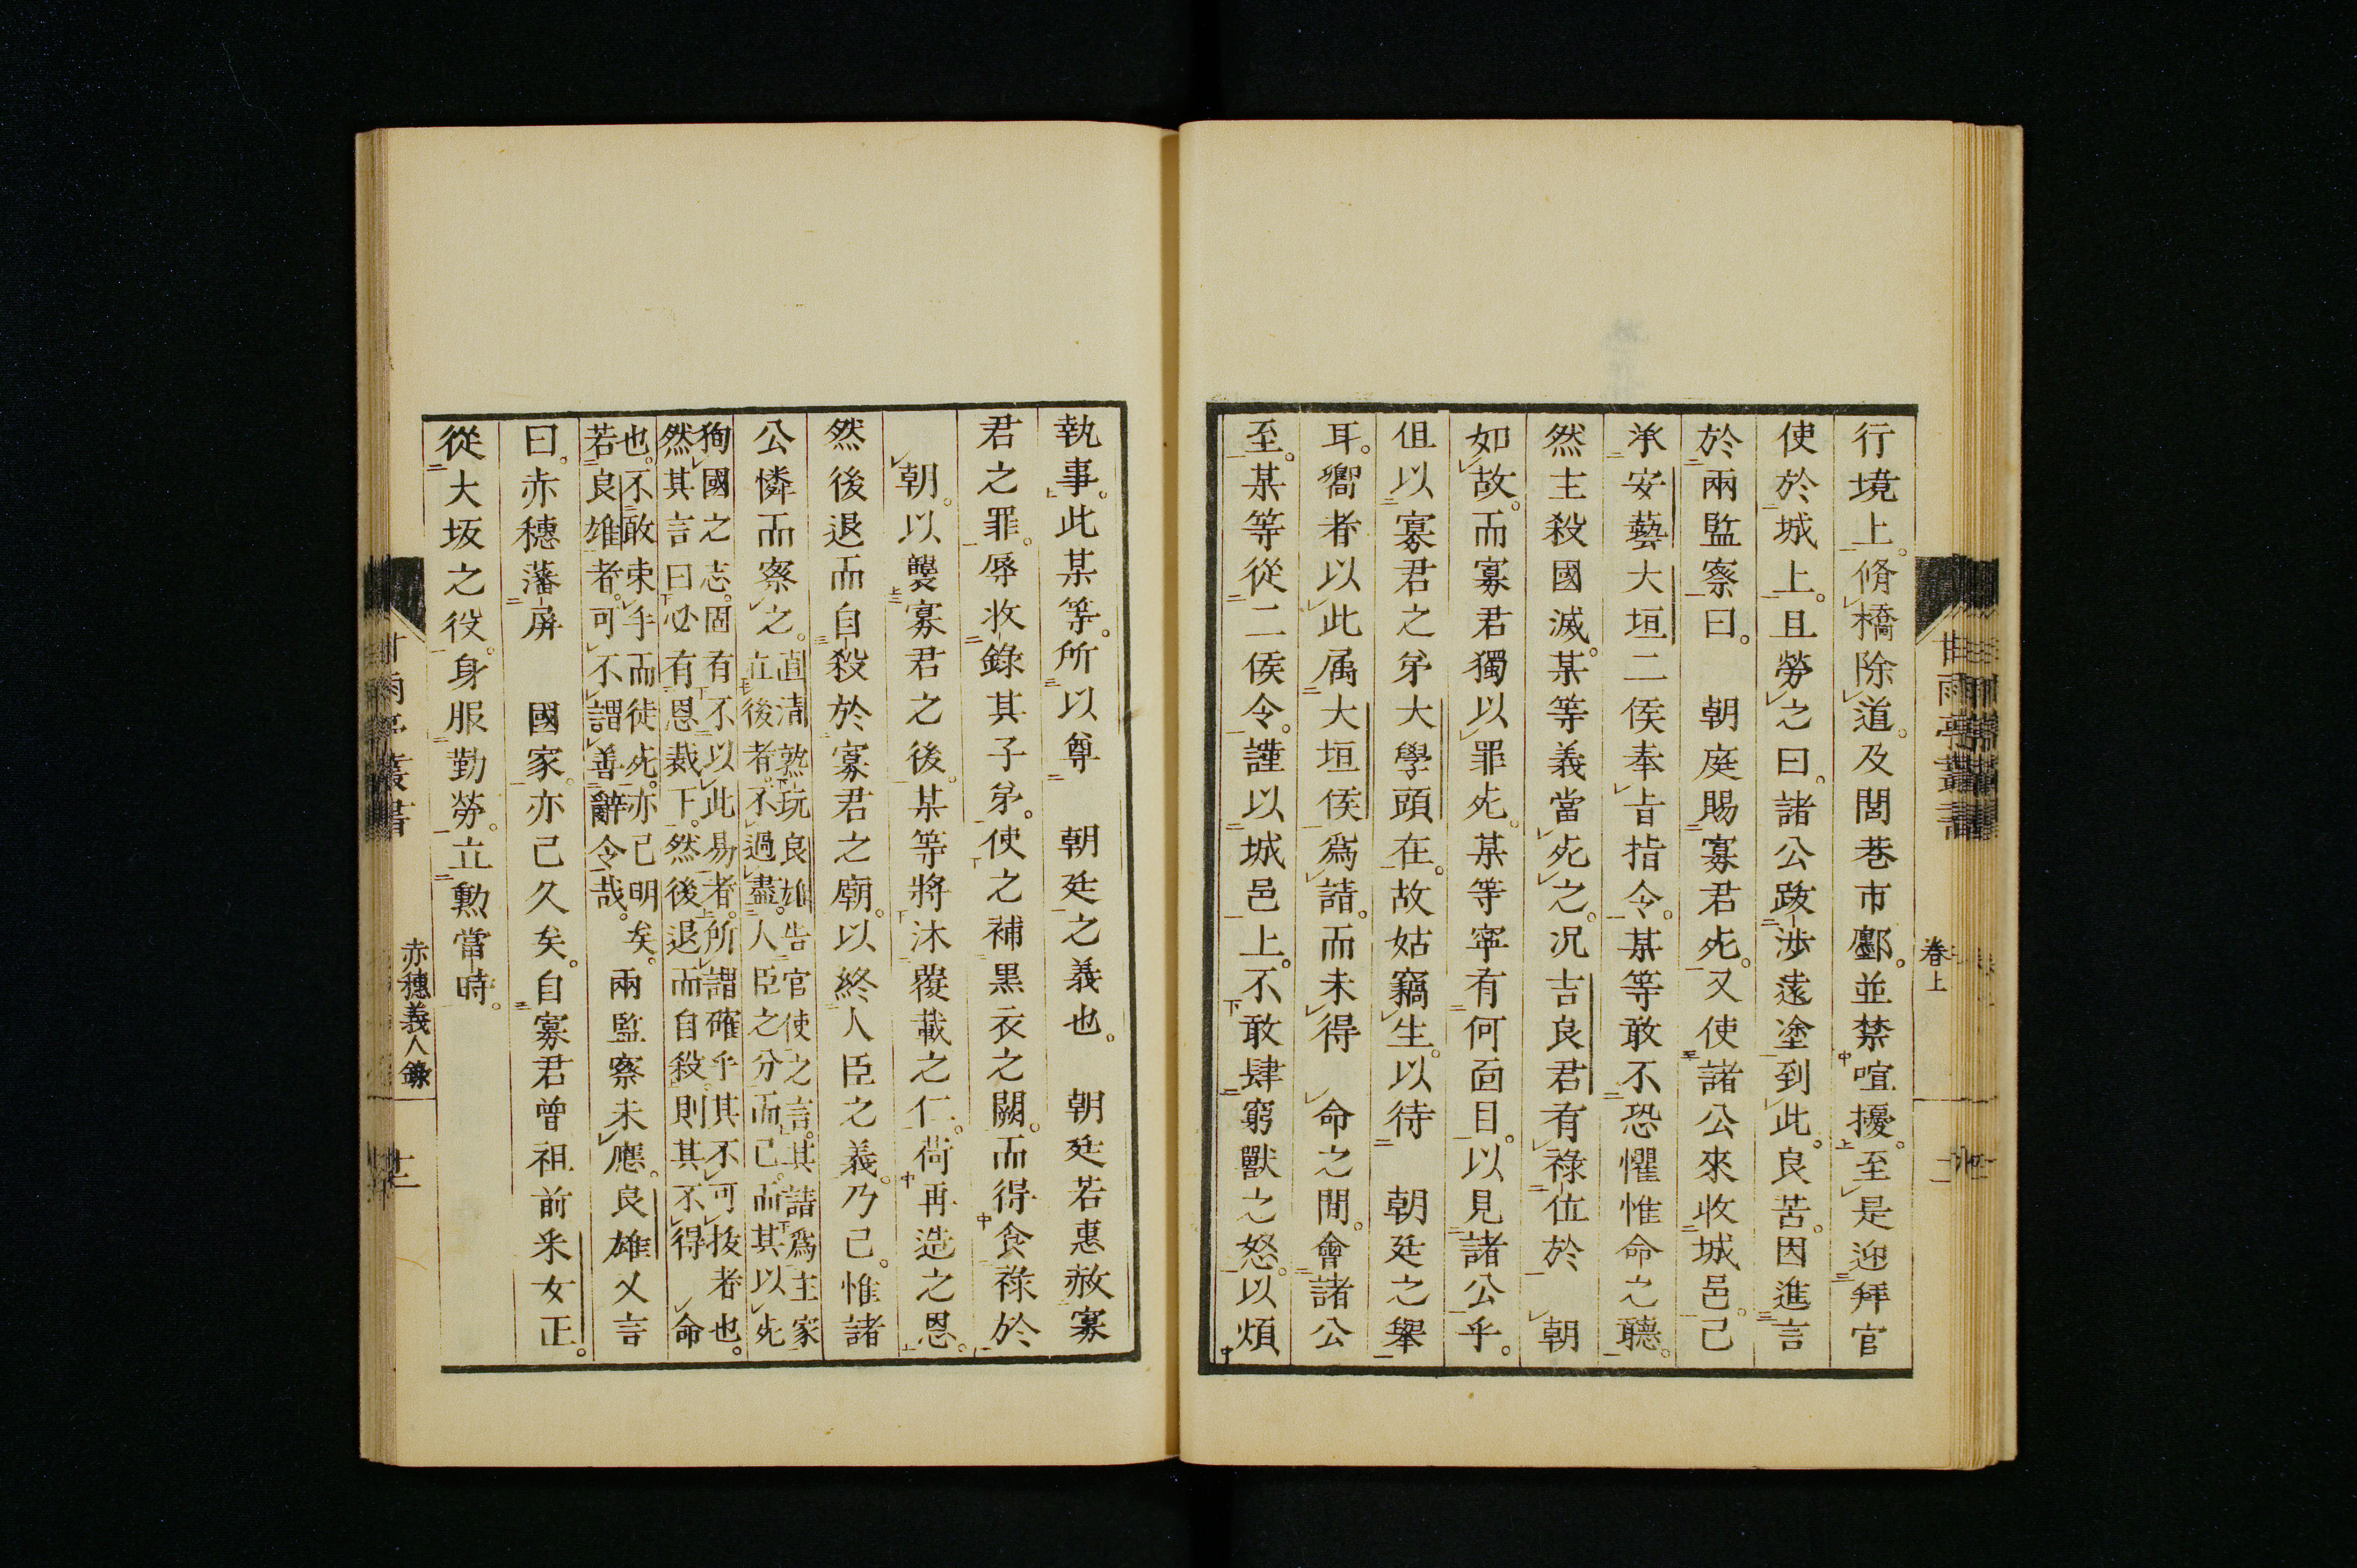 行境上。脩橋除道。及閭巷市鄽。並禁喧擾。至是迎拜官
使於城上。且勞之曰。諸公跋涉遠塗到此。良苦。因進言
於兩監察曰。　朝庭賜寡君死。又使諸公來收城邑。已
承安藝大垣二侯奉旨指令。某等敢不恐懼惟命之聽。
然主殺國滅。某等義當死之。况吉良君有祿位於　朝
如故。而寡君獨以罪死。某等寧有何面目。以見諸公乎。
但以寡君之弟大學頭在。故姑竊生。以待　朝廷之舉
耳。嚮者以此属大垣侯爲請。而未得　命之間。會諸公
至。某等從二侯令。謹以城邑上。不敢肆窮獸之怒。以煩
卷上
執事。此某等。所以尊　朝廷之義也。　朝廷若惠赦寡
君之罪。辱收錄其子弟。使之補黑衣之闕。而得食祿於
朝。以襲寡君之後。某等將沐覆載之仁。荷再造之恩。
然後退而自殺於寡君之廟。以終人臣之義。乃已。惟諸
公憐而察之。
直清熟玩良雄告官使之言。其請爲主家
立後者。不過盡人臣之分而已。而其以死
狥國之志。固有不以此易者。所謂確乎其不可拔者也。
然其言曰必有恩裁下。然後退而自殺。則其不得　命
也。不敢束手而徒死。亦已明矣。
若良雄者。可不謂善辭令哉。
兩監察未應。良雄又言
曰。赤穗藩屏　國家。亦已久矣。自寡君曾祖前采女正。
從大坂之役。身服勤勞。立勲當時。
甘雨亭叢書
赤穗義人錄